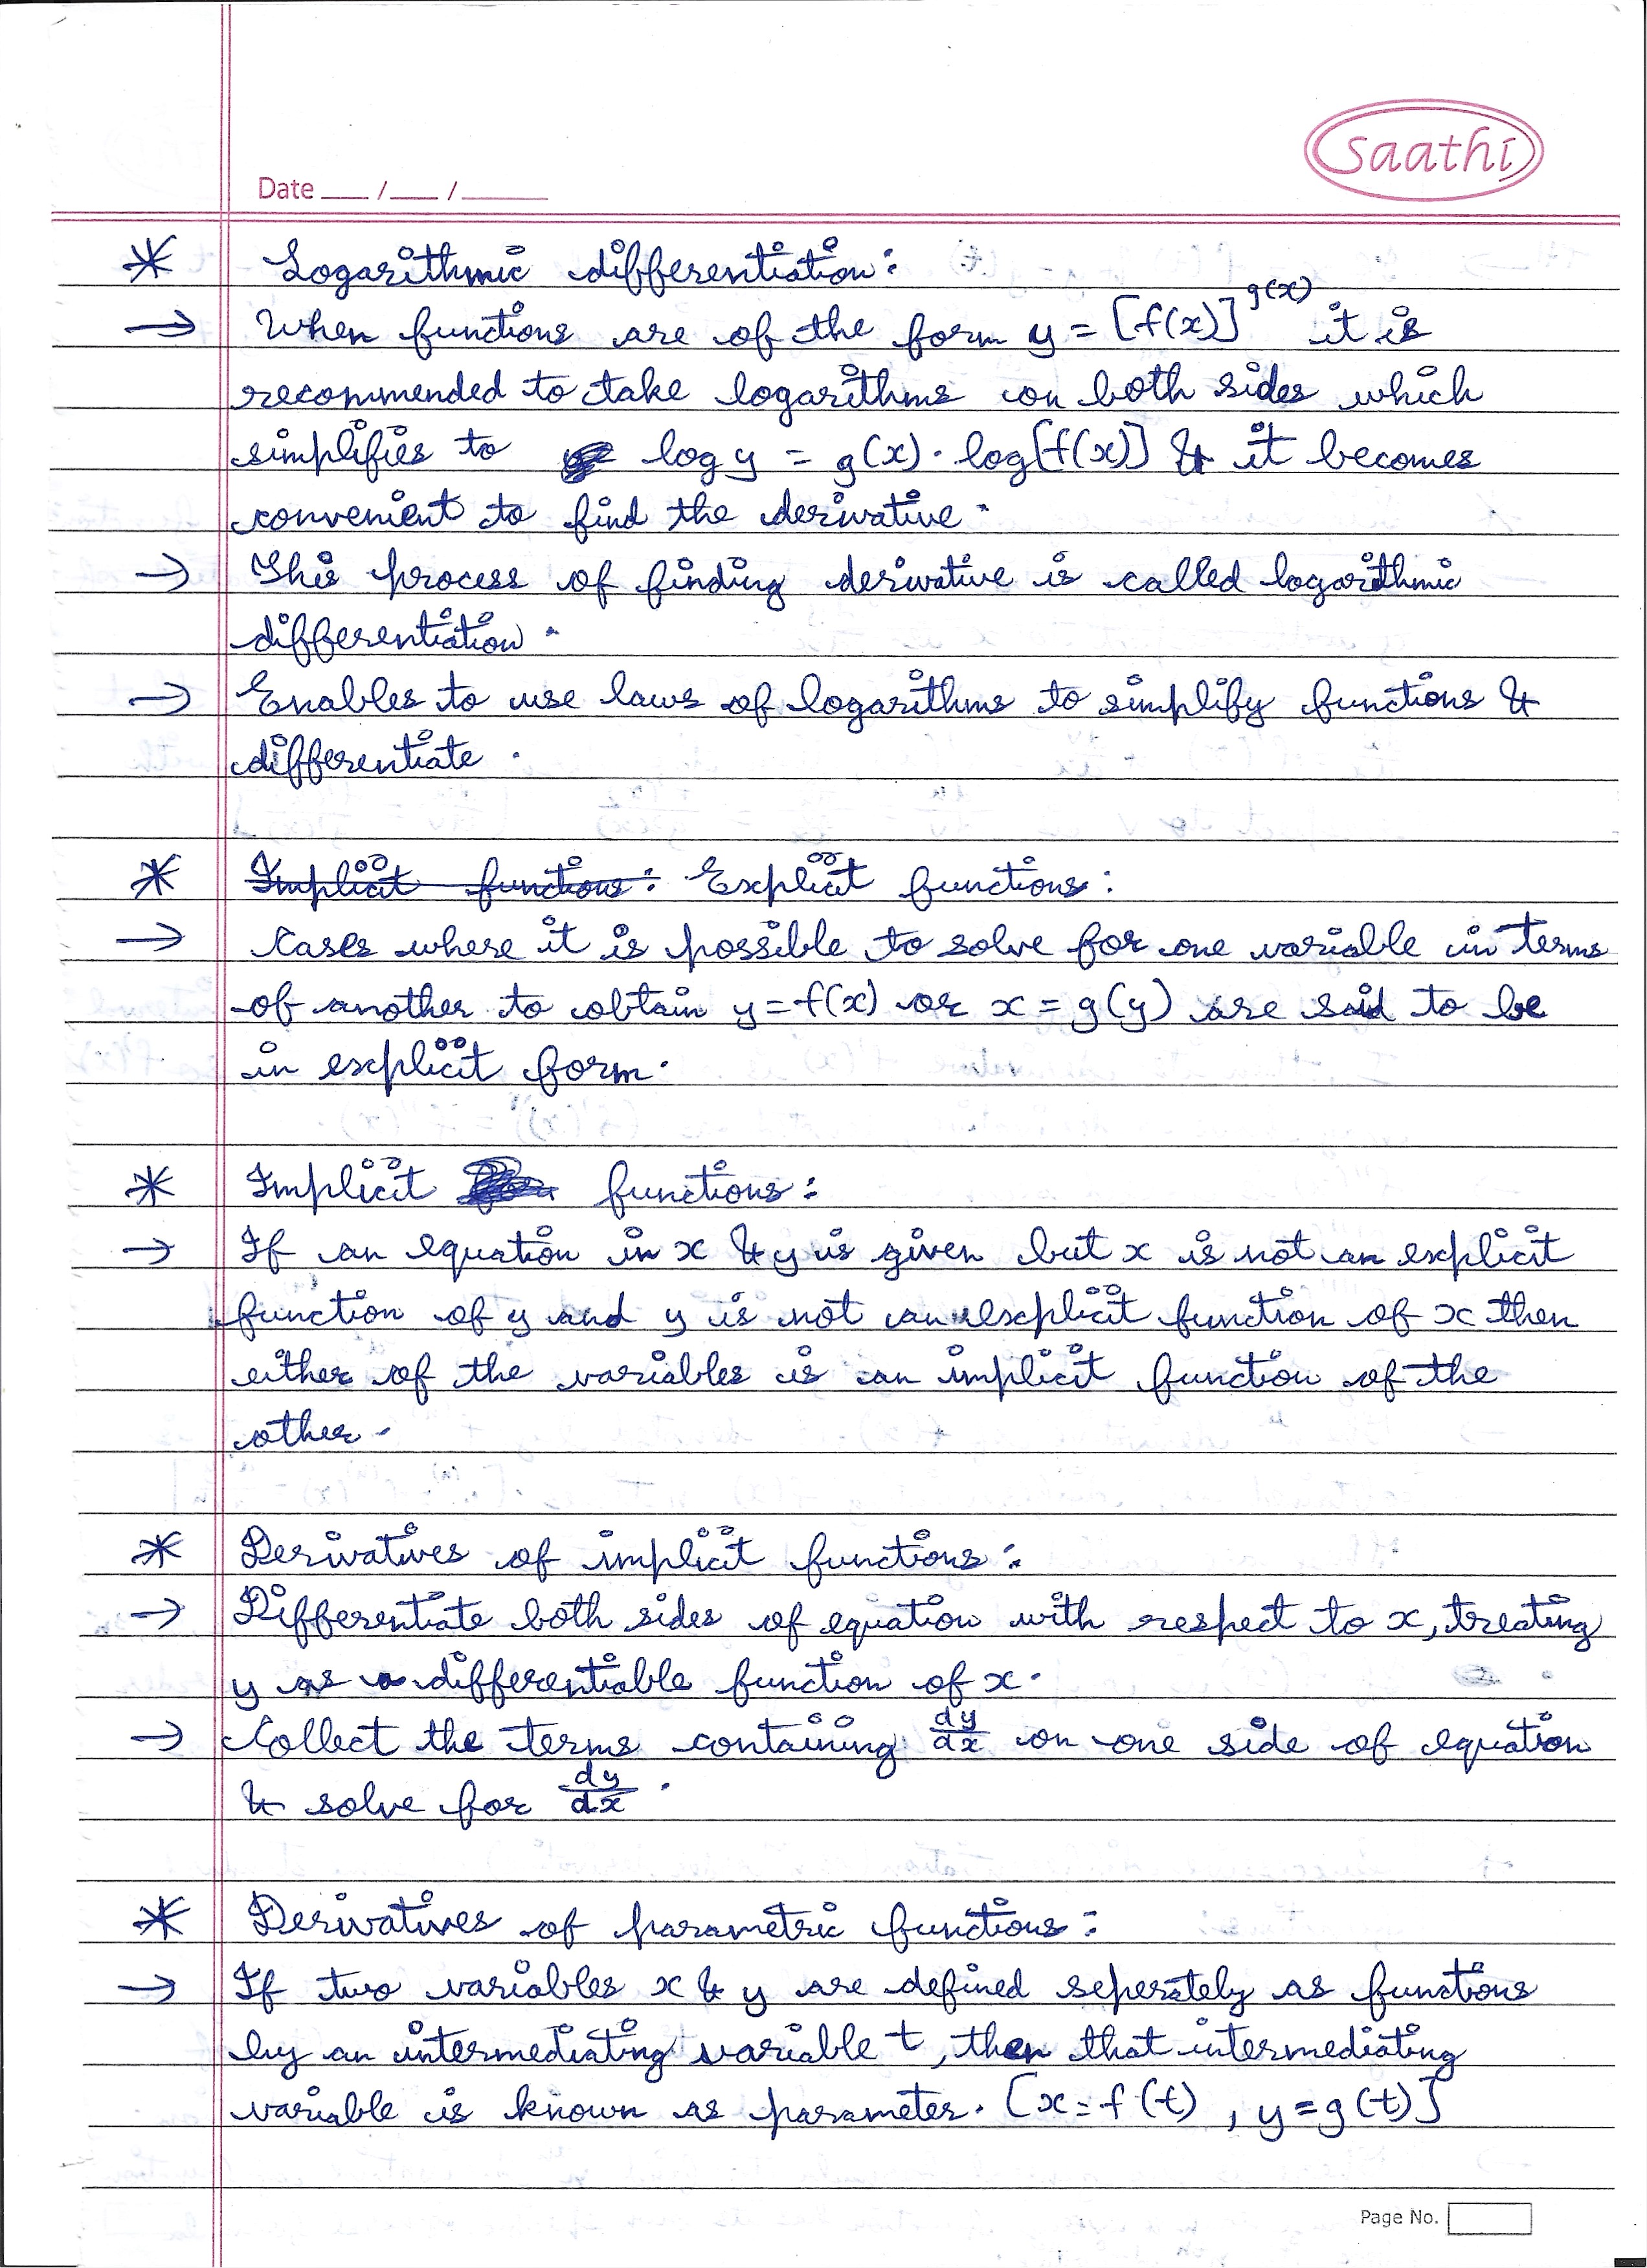 Saathi
Date ___ / ___ / ______
* Logarithmic differentiation:
→ When functions are of the form y = [f(x)]^g(x) it is
recommended to take logarithms on both sides which
simplifies to log y = g(x) · log[f(x)] & it becomes
convenient to find the derivative.
→ This process of finding derivative is called logarithmic
differentiation.
→ Enables to use laws of logarithms to simplify functions &
differentiate.
* Implicit functions: Explicit functions:
→ Cases where it is possible to solve for one variable in terms
of another to obtain y = f(x) or x = g(y) are said to be
in explicit form.
* Implicit functions:
→ If an equation in x & y is given but x is not an explicit
function of y and y is not an explicit function of x then
either of the variables is an implicit function of the
other.
* Derivatives of implicit functions:
→ Differentiate both sides of equation with respect to x, treating
y as a differentiable function of x.
→ Collect the terms containing dy/dx on one side of equation
& solve for dy/dx.
* Derivatives of parametric functions:
→ If two variables x & y are defined seperately as functions
by an intermediating variable t, then that intermediating
variable is known as parameter. [x = f(t), y = g(t)]
Page No.